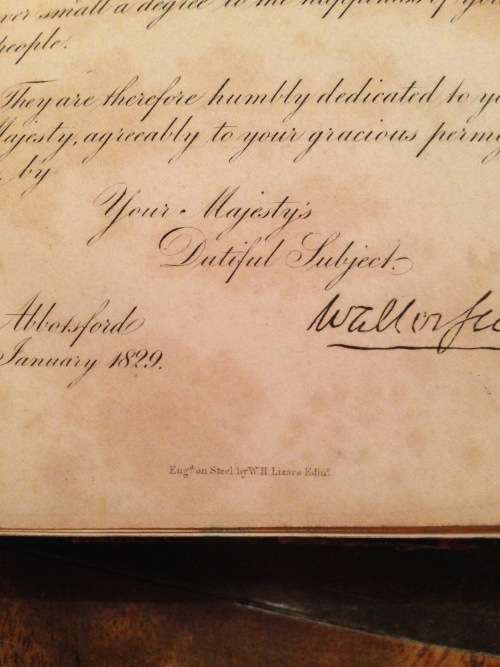 small a degree to the happiness of
people.
They are therefore humbly dedicated to
Majesty, agreeably to your gracious
by
Your Majesty's
Dutiful Subject.
Walter
Abbotsford
January 1829.
Engd. on Steel by W.H. Lizars Edinr.